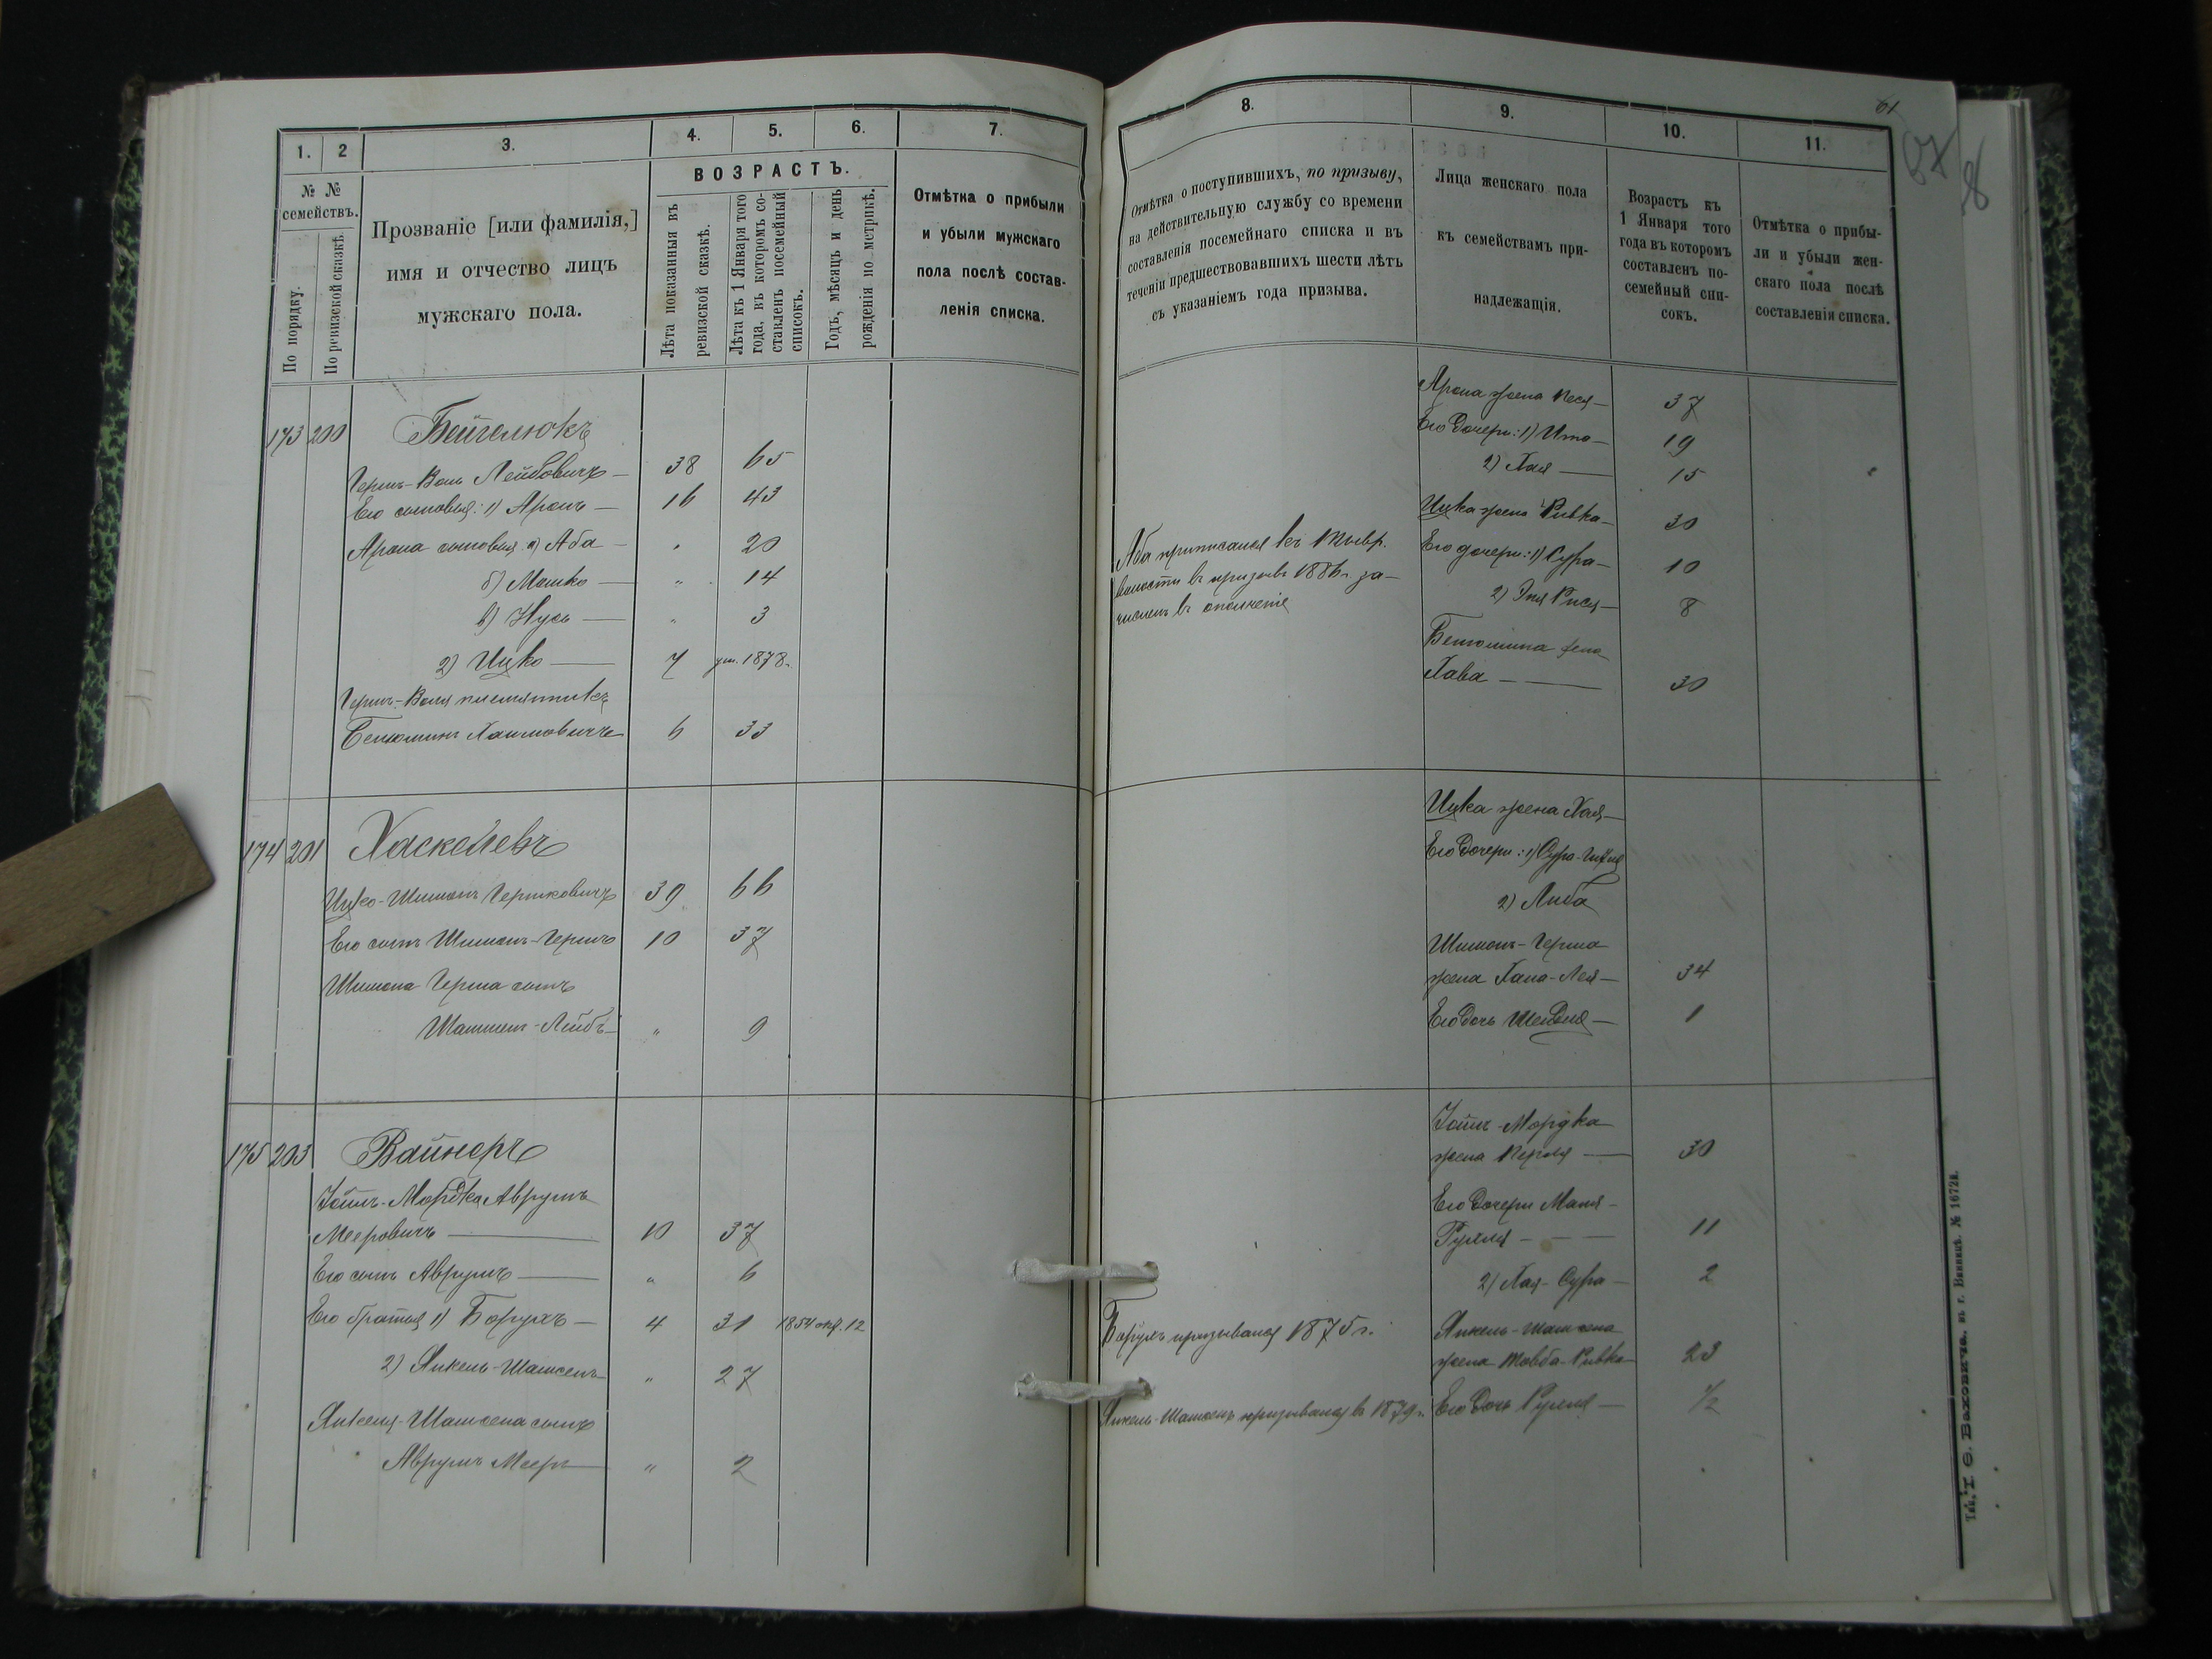 1. 2 3. 4. 5. 6. 7.
№ №
семействъ.
По порядку.
По ревизской сказкѣ.
Прозваніе [или фамилія,]
имя и отчество лицъ
мужскаго пола.
ВОЗРАСТЪ.
Лѣта показанныя въ
ревизской сказкѣ.
Лѣта къ 1 Января того
года, въ которомъ со-
ставленъ посемейный
списокъ.
Годъ, мѣсяцъ и день
рожденія по метрикѣ.
Отмѣтка о прибыли
и убыли мужскаго
пола послѣ состав-
ленія списка.
173 200 Бейгелюкъ
Гершъ-Воль Лейбовичъ — 38 65
Его сыновья: 1) Аронъ — 16 43
Арона сыновья: а) Аба — " 20
б) Мошко — " 14
в) Нусь — " 3
2) Ицко — 7 ум. 1878 г.
Гершъ-Воля племянникъ
Бенюминъ Хаимовичъ 6 33
174 201 Хаскелевъ
Ицко-Шимонъ Гершковичъ 39 66
Его сынъ Шимонъ-Гершъ 10 37
Шимона Герша сынъ
Шамшенъ-Лейбъ — " 9
175 203 Вайнеръ
Мордка Аврумъ
Мееровичъ — 10 37
Его сынъ Аврумъ — " 6
Его братья 1) Борухъ — 4 31 1854 окт. 12
2) Янкель-Шамсенъ — " 27
Янкеля-Шамсена сынъ
Аврумъ Мееръ — " 2
61
8. 9. 10. 11.
Отмѣтка о поступившихъ, по призыву,
на дѣйствительную службу со времени
составленія посемейнаго списка и въ
теченіи предшествовавшихъ шести лѣтъ
съ указаніемъ года призыва.
Лица женскаго пола
къ семействамъ при-
надлежащія.
Возрастъ къ
1 Января того
года въ которомъ
составленъ по-
семейный спи-
сокъ.
Отмѣтка о прибы-
ли и убыли жен-
скаго пола послѣ
составленія списка.
Арона жена Песя — 37
Его дочери: 1) Ита — 19
2) Хая — 15
Ицка жена Ривка — 30
Аба приписался къ Тывр.
Его дочери: 1) Сура — 10
волости въ призывъ 1886 г. за-
2) Эня Рися — 8
численъ въ ополченіе
Бенюмина жена
Хава — 30
Ицка жена Хая —
Его дочери: 1) Сура
2) Либа
Шимонъ-Герша
жена Хана-Лея — 34
Его дочь Шейндля — 1
Мордка
жена Перля — 30
Его дочери Маня-
Рухля — 11
2) Хая-Сура — 2
Борухъ призывался 1875 г.
Янкель-Шамсена
жена Товба-Ривка — 23
Янкель-Шамсенъ призывался въ 1879 г. Его дочь Рухля — 1/2
Тип. Ѳ. Баховича, въ г. Винницѣ. № 1672й.